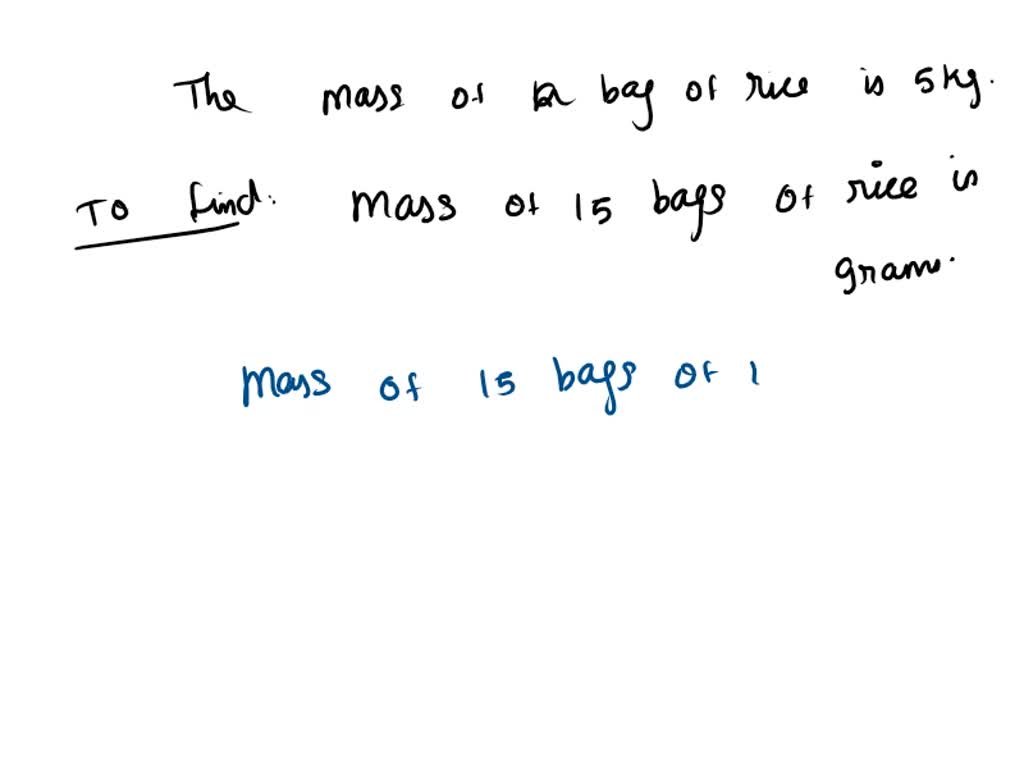 The mass of a bag of rice is 5kg.
To find: Mass of 15 bags of rice is
grams.
Mass of 15 bags of